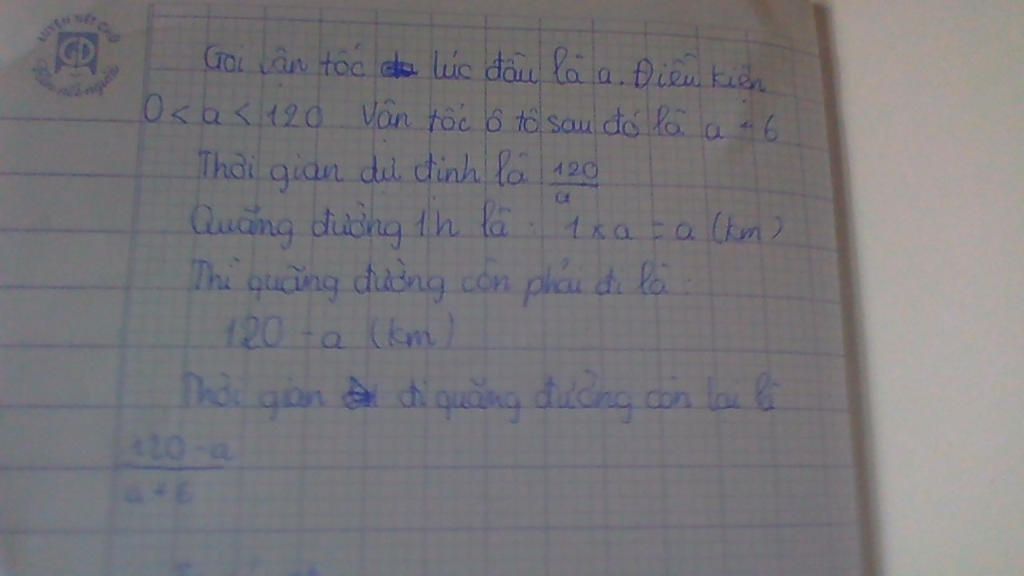 Gọi vận tốc lúc đầu là a. Điều kiện
0 < a < 120 Vận tốc ô tô sau đó là a + 6
Thời gian dự định là 120/a
Quãng đường 1h là : 1 x a = a (km)
Thì quãng đường còn phải đi là :
120 - a (km)
Thời gian đi quãng đường còn lại là
120 - a
a + 6